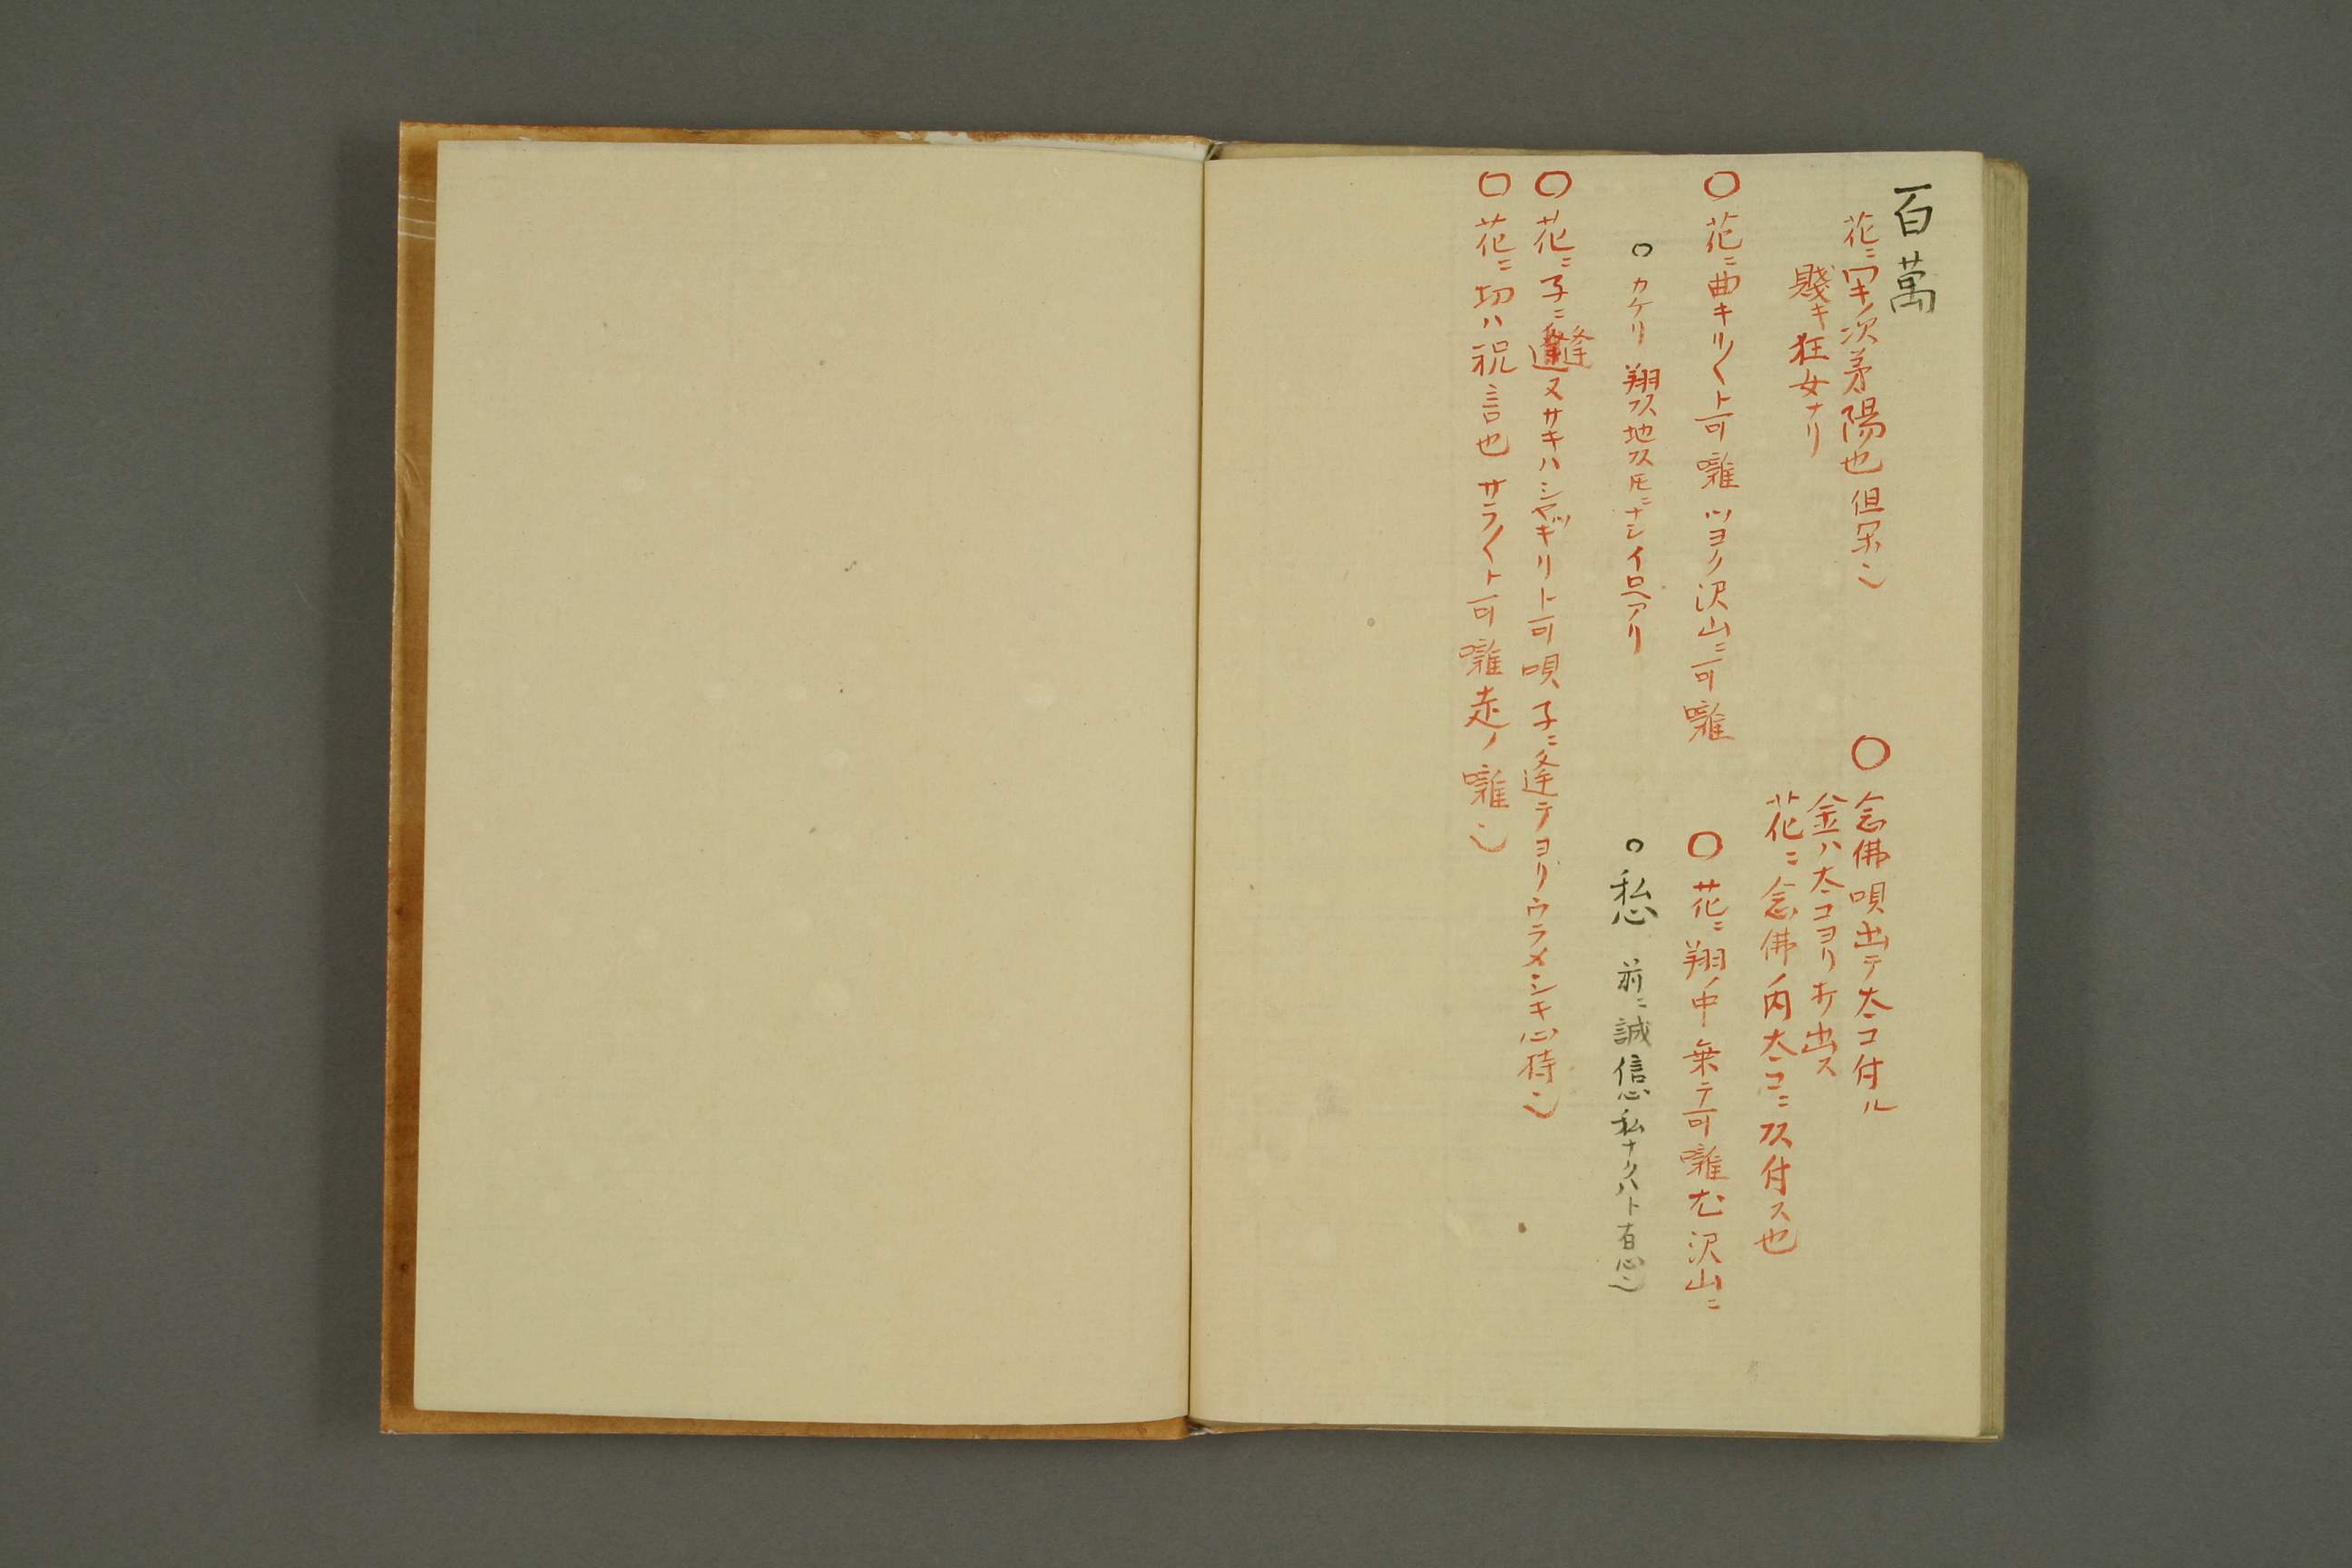 百萬
花ニワキノ次第陽也但
賤キ狂女ナリ
〇念佛唄出テ太コ付ル
金ハ太コヨリ打出ス
花ニ念佛ノ内太コニ付ス也
〇花ニ曲キリ〱ト可囃ツヨク沢山ニ可囃
〇花ニ翔ノ中乗テ可囃尤沢山ニ
〇カケリ 翔地ニナシイロヘアリ
〇私心 前ニ誠信心私ナクハト有心
〇花ニ子ニ逢又サキハシヤッキリト可唄子ニ逢テヨリウラメシキ心待
〇花ニ切ハ祝言也サラ〱ト可囃走ノ囃